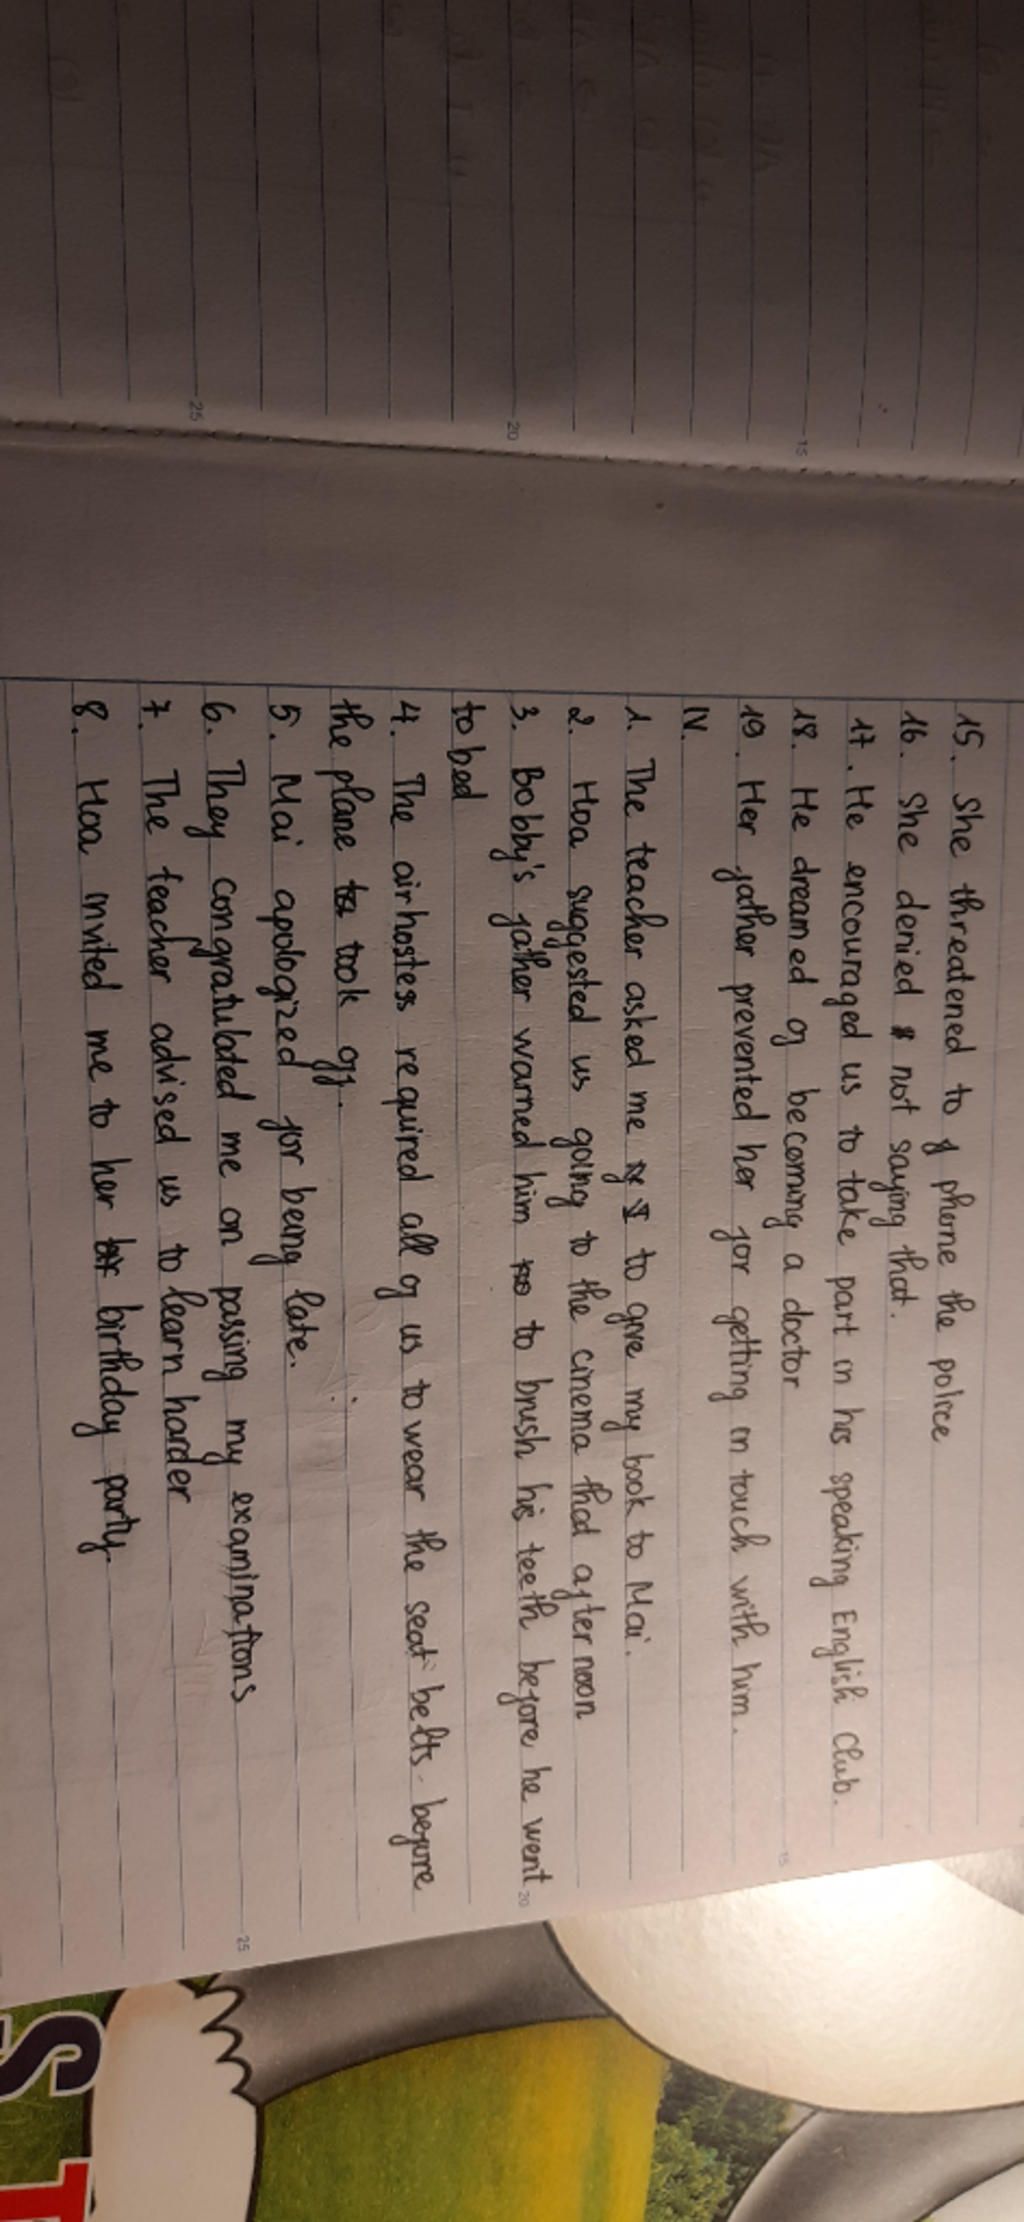 15. She threatened to phone the police
16. She denied not saying that.
17. He encouraged us to take part in his speaking English Club.
18. He dreamed of becoming a doctor
19. Her father prevented her for getting in touch with him.
IV.
1. The teacher asked me to give my book to Mai.
2. Hoa suggested us going to the cinema that afternoon
3. Bobby's father warned him to brush his teeth before he went
to bed
4. The airhostess required all of us to wear the seat belts before
the plane took off.
5. Mai apologized for being late.
6. They congratulated me on passing my examinations
7. The teacher advised us to learn harder
8. Hoa invited me to her birthday party.
15
20
25
15
20
25
S